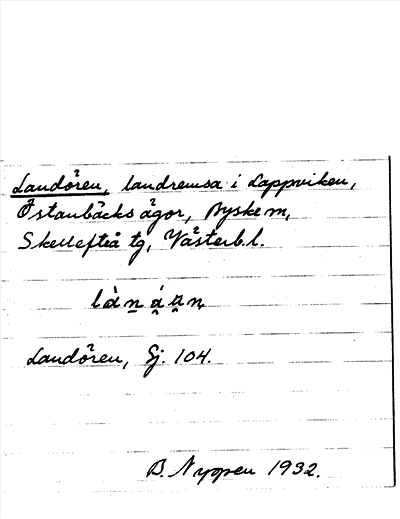 Landören, landremsa i Lappviken,
Östanbäcks ägor, Byske sn,
Skellefteå tg, Västerb. l.
Landören, Gj. 104.
B. Nygren 1932.